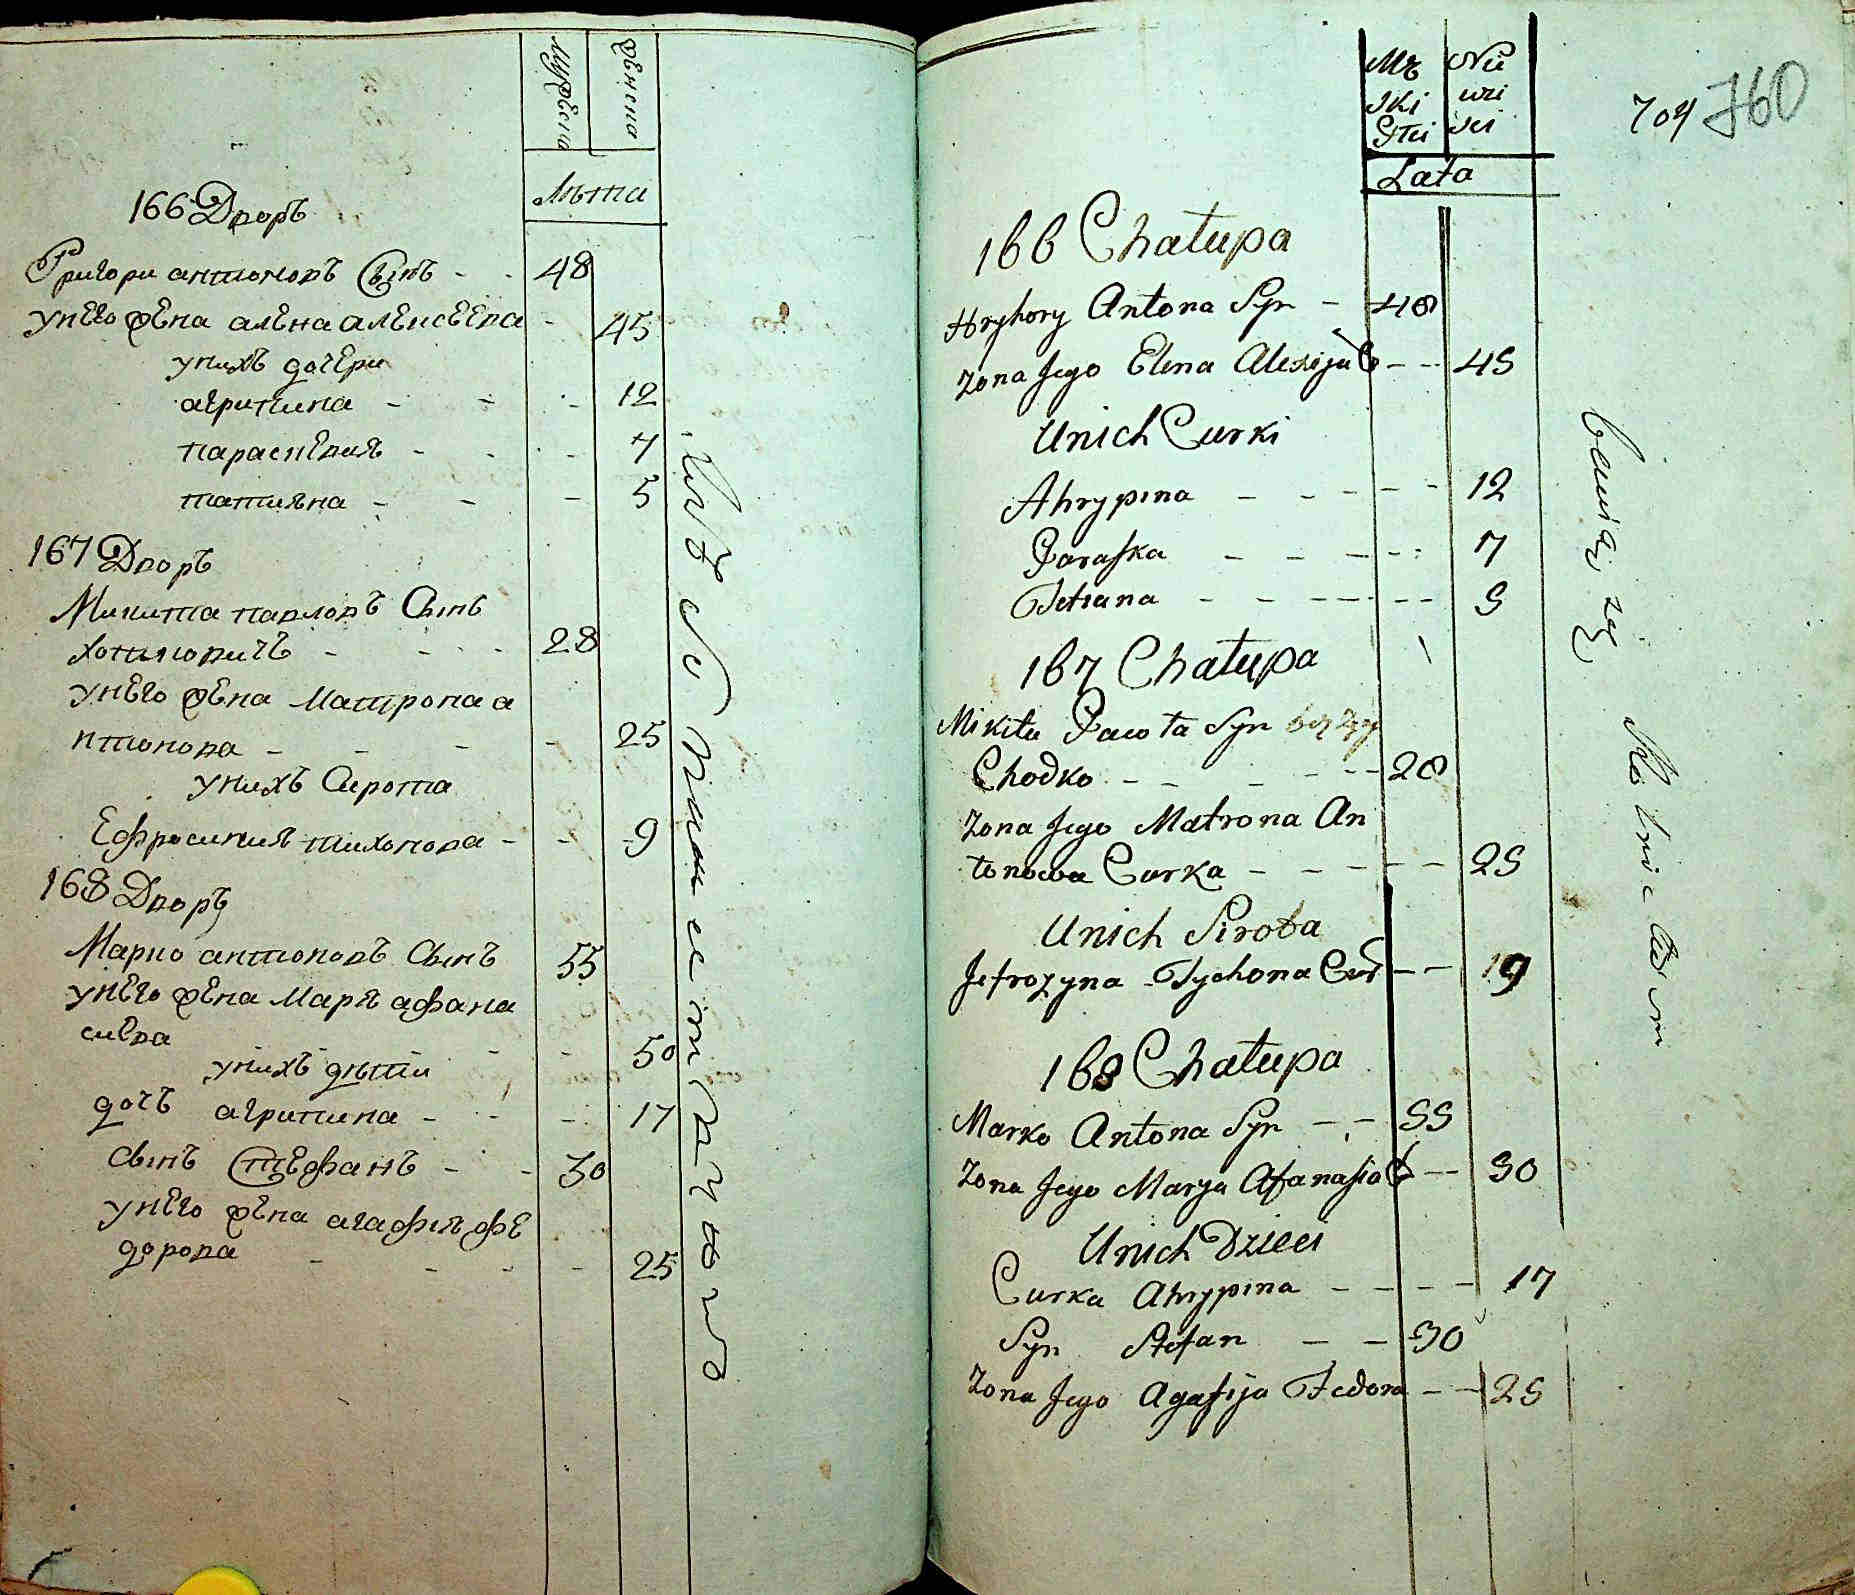 мужеска
женска
лѣта
166 Дворъ
Григори антоновъ Сынъ - - 48
унего жена алена алексеева - 45
унихъ дочери
агрипина - - - 12
параскевия - - - 7
татияна - - - 5
167 Дворъ
Микита павловъ Сынъ
хотковичъ - - - 28
унего жена Матрона а
нтонова - - - - 25
унихъ Сирота
Ефросиния тихонова - - 9
168 Дворъ
Марко антоновъ Сынъ 55
унего жена Маря афана
сиева - - 50
унихъ дѣти
дочъ агрипина - - - 17
Сынъ Стефанъ - - 30
унего жена агафия фе
дорова - - - - 25
Mę Nie
ski wie
Stei sci
Lata
704 760
166 Chałupa
Hryhory Antona Syn - 48
Zona Jego Elena Alexija C - - 45
Unich Curki
Ahrypina - - - - - 12
Paraska - - - - - 7
Tetiana - - - - - 5
167 Chałupa
Mikita Pawła Syn
Chodko - - - - - 28
Zona Jego Matrona An
tonowa Curka - - - - - 25
Unich Sirota
Jefrozyna Tychona Cur - - 19
168 Chałupa
Marko Antona Syn - - 55
Zona Jego Marya Afanasia C - - 50
Unich Dzieci
Curka Ahrypina - - - - 17
Syn Stefan - - 30
Zona Jego Agafija Fedora - - 25